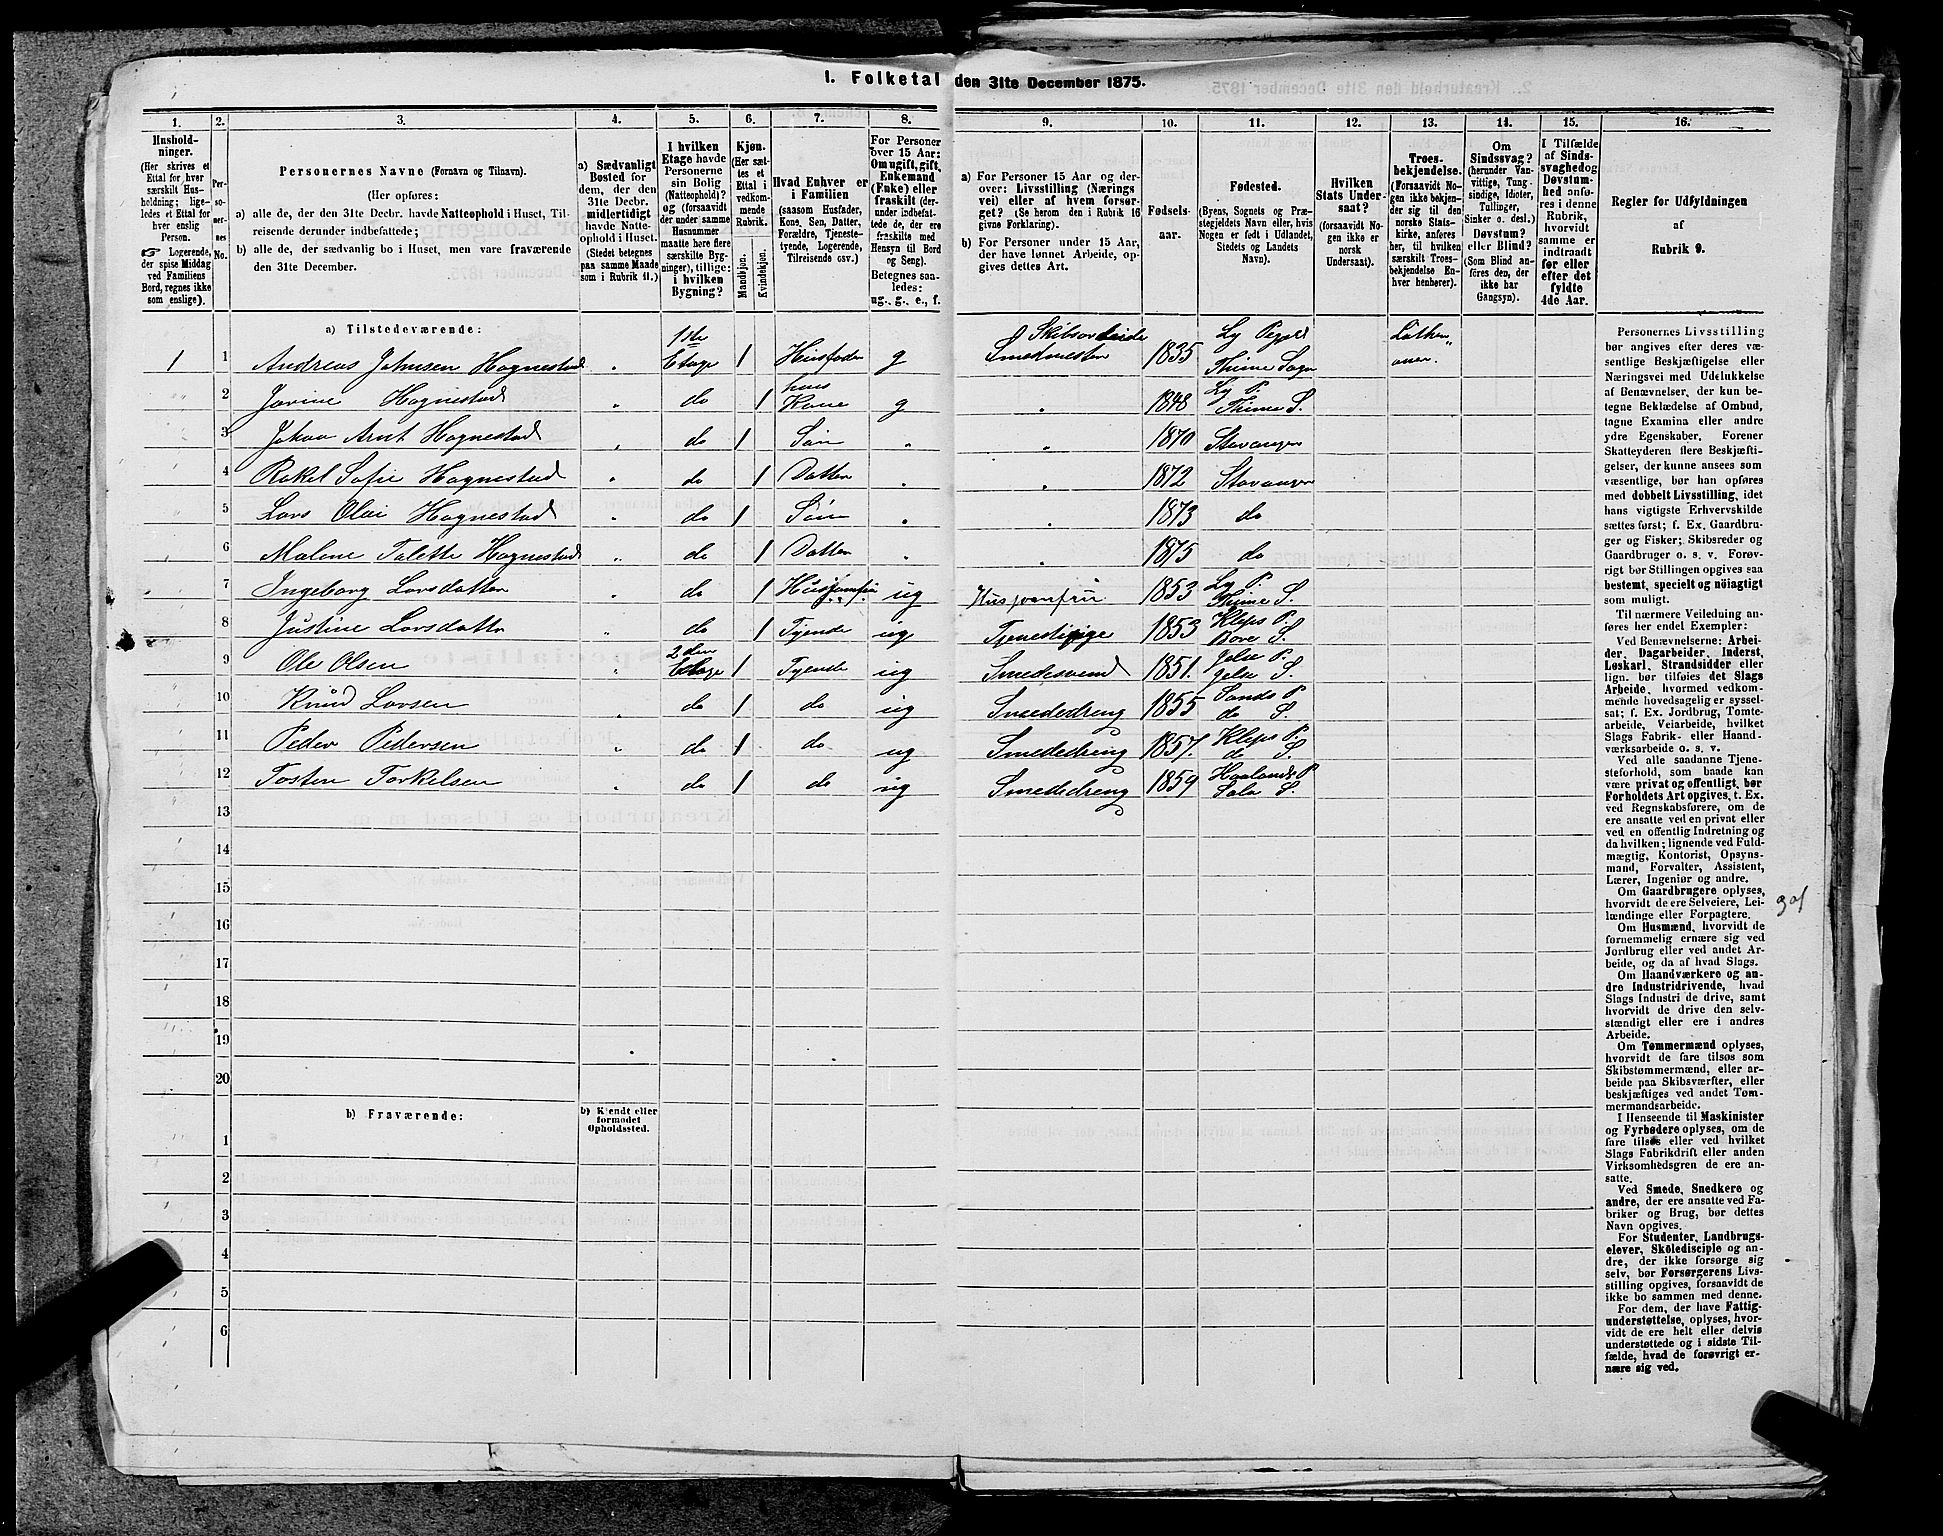 1. Folketal den 31te December 1875.
1. 2. 3. 4. 5. 6. 7. 8. 9. 10. 11. 12. 13. 14. 15. 16.
Hushold-
ninger.
(Her skrives et
Ettal for hver
særskilt Hus-
holdning; lige-
ledes et Ettal for
hver enslig
Person.
☞ Logerende,
der spise Middag
ved Familiens
Bord, regnes ikke
som enslige).
Per-
so-
ner-
nes
No.
Personernes Navne (Fornavn og Tilnavn).
(Her opføres:
a) alle de, der den 31te Decbr. havde Natteophold i Huset, Til-
reisende derunder indbefattede;
b) alle de, der sædvanlig bo i Huset, men vare fraværende
den 31te December.
a) Sædvanligt
Bosted for
dem, der den
31te Decbr.
midlertidigt
havde Natte-
ophold i Huset.
(Stedet betegnes
paa samme Maade
som i Rubrik 11.)
I hvilken
Etage havde
Personerne
sin Bolig
(Natteophold)?
og (forsaavidt
der under samme
Husnummer
maatte høre flere
særskilte Byg-
ninger), tillige:
i hvilken
Bygning?
Kjøn.
(Her sæt-
tes et
Ettal i
vedkom-
mende
Rubrik.
Mandkjøn.
Kvindekjøn.
Hvad Enhver er
i Familien
(saasom Husfader,
Kone, Søn, Datter,
Forældre, Tjeneste-
tyende, Logerende,
Tilreisende osv.)
For Personer
over 15 Aar:
Om ugift, gift,
Enkemand
(Enke) eller
fraskilt (der-
under indbefat-
tede de, der ere
fraskilte med
Hensyn til Bord
og Seng).
Betegnes saa-
ledes:
ug., g., e., f.
a) For Personer 15 Aar og der-
over: Livsstilling (Nærings
vei) eller af hvem forsør-
get? (Se herom den i Rubrik 16
givne Forklaring).
b) For Personer under 15 Aar,
der have lønnet Arbeide, op-
gives dettes Art.
Fødsels-
aar.
Fødested.
(Byens, Sognets og Præ-
stegjeldets Navn eller, hvis
Nogen er født i Udlandet,
Stedets og Landets
Navn).
Hvilken
Stats Under-
saat?
(forsaavidt No-
gen ikke er
norsk
Undersaat).
Troes-
bekjendelse.
(Forsaavidt No-
gen ikke bekjen-
der sig til den
norske Stats-
kirke, anføres
her, til hvilken
særskilt Troes-
bekjendelse En-
hver henhører).
Om
Sindssvag?
(herunder Van-
vittige, Tung-
sindige, Idioter,
Tullinger,
Sinker o. desl.)
Døvstum?
eller Blind?
(Som Blind an-
føres den, der
ikke har
Gangsyn).
I Tilfælde
af Sinds-
svaghed og
Døvstum-
hed anfø-
res i denne
Rubrik,
hvorvidt
samme er
indtraadt
før eller
efter det
fyldte
4de Aar.
Regler for Udfyldningen
af
Rubrik 9.
a) Tilstedeværende:
1 1 Andreas Johnsen Hognestad " 1ste Etage 1 Husfader g Skibssmede Smedmester 1835 Ly Pgjeld Thime Sogn Luther- aner.
2 Jorine Hognestad " do 1 hans Kone g " 1848 Ly P. Thime S.
3 Johan Arnt Hognestad " do 1 Søn " " 1870 Stavanger
4 Rakel Sofie Hognestad " do 1 Datter " " 1872 Stavanger
5 Lars Olai Hognestad " do 1 Søn " " 1873 do
6 Malene Talette Hognestad " do 1 Datter " 1875 do
7 Ingeborg Larsdatter " do 1 Husjomfru ug Husjomfru 1853 Ly P. Thime S.
8 Justine Larsdatter " do 1 Tyende ug Tjenestepige 1853 Kleps P. Bore S.
9 Ole Olsen " 2den Etage 1 Tyende ug Smedesvend 1851. Jelse P. Jelse S.
10 Knud Larsen " do 1 do ug Smededreng 1855 Sands P. do S.
11 Peder Pedersen " do 1 do ug Smededreng 1857. Kleps P. do S.
12 Tosten Torkelsen " do 1 do ug Smededreng 1859 Haalands P. Sola S.
13
14
15
16
17
18
19
20
b) Fraværende:
b) Kjendt eller
formodet
Opholdssted.
1
2
3
4
5
6
Personernes Livsstilling
bør angives efter deres væ-
sentlige Beskjæftigelse eller
Næringsvei med Udelukkelse
af Benævnelser, der kun be-
tegne Beklædelse af Ombud,
tagne Examina eller andre
ydre Egenskaber. Forener
Skatteyderen flere Beskjæfti-
gelser, der kunne ansees som
væsentlige, bør han opføres
med dobbelt Livsstilling, idet
hans vigtigste Erhvervskilde
sættes først; f. Ex. Gaardbru-
ger og Fisker; Skibsreder og
Gaardbruger o. s. v. Forøv-
rigt bør Stillingen opgives saa
bestemt, specielt og nöiagtigt
som muligt.
Til nærmere Veiledning an-
føres her endel Exempler:
Ved Benævnelserne: Arbei-
der, Dagarbeider, Inderst,
Løskarl, Strandsidder eller
lign. bør tilføies det Slags
Arbeide, hvormed vedkom-
mende hovedsagelig er syssel-
sat; f. Ex. Jordbrug, Tomte-
arbeide, Veiarbeide, hvilket
Slags Fabrik- eller Haand-
værksarbeide o. s. v.
Ved alle saadanne Tjene-
steforhold, som baade kan
være privat og offentligt, bør
Forholdets Art opgives, t. Ex.
ved Regnskabsførere, om de
ere ansatte ved en privat eller
ved en offentlig Indretning og
da hvilken; lignende ved Fuld-
mægtig, Kontorist, Opsyns-
mand, Forvalter, Assistent,
Lærer, Ingeniør og andre.
Om Gaardbrugere oplyses,
hvorvidt de ere Selveiere, Lei-
lændinge eller Forpagtere.
Om Husmænd, hvorvidt de
fornemmelig ernære sig ved
Jordbrug eller ved andet Ar-
beide, og da af hvad Slags.
Om Haandværkere og an-
dre Industridrivende, hvad
Slags Industri de drive, samt
hvorvidt de drive den selv-
stændigt eller ere i andres
Arbeide.
Om Tømmermænd oplyses,
hvorvidt de fare tilsøs som
Skibstømmermænd, eller ar-
beide paa Skibsværfter, eller
beskjæftiges ved andet Tøm-
mermandsarbeide.
I Henseende til Maskinister
og Fyrbødere oplyses, om de
fare tilsøs eller ved hvilket
Slags Fabrikdrift eller anden
Virksomhedsgren de ere an-
satte.
Ved Smede, Snedkere og
andre, der ere ansatte ved Fa-
briker og Brug, bør dettes
Navn opgives.
For Studenter, Landbrugs-
elever, Skoledisciple og an-
dre, der ikke forsørge sig
selv, bør Forsørgerens Livs-
stilling opgives, forsaavidt de
ikke bo sammen med denne.
For dem, der have Fattig-
understøttelse, oplyses, hvor-
vidt de ere helt eller delvis
understøttede og i sidste Til-
fælde, hvad de forøvrigt er-
nære sig ved.